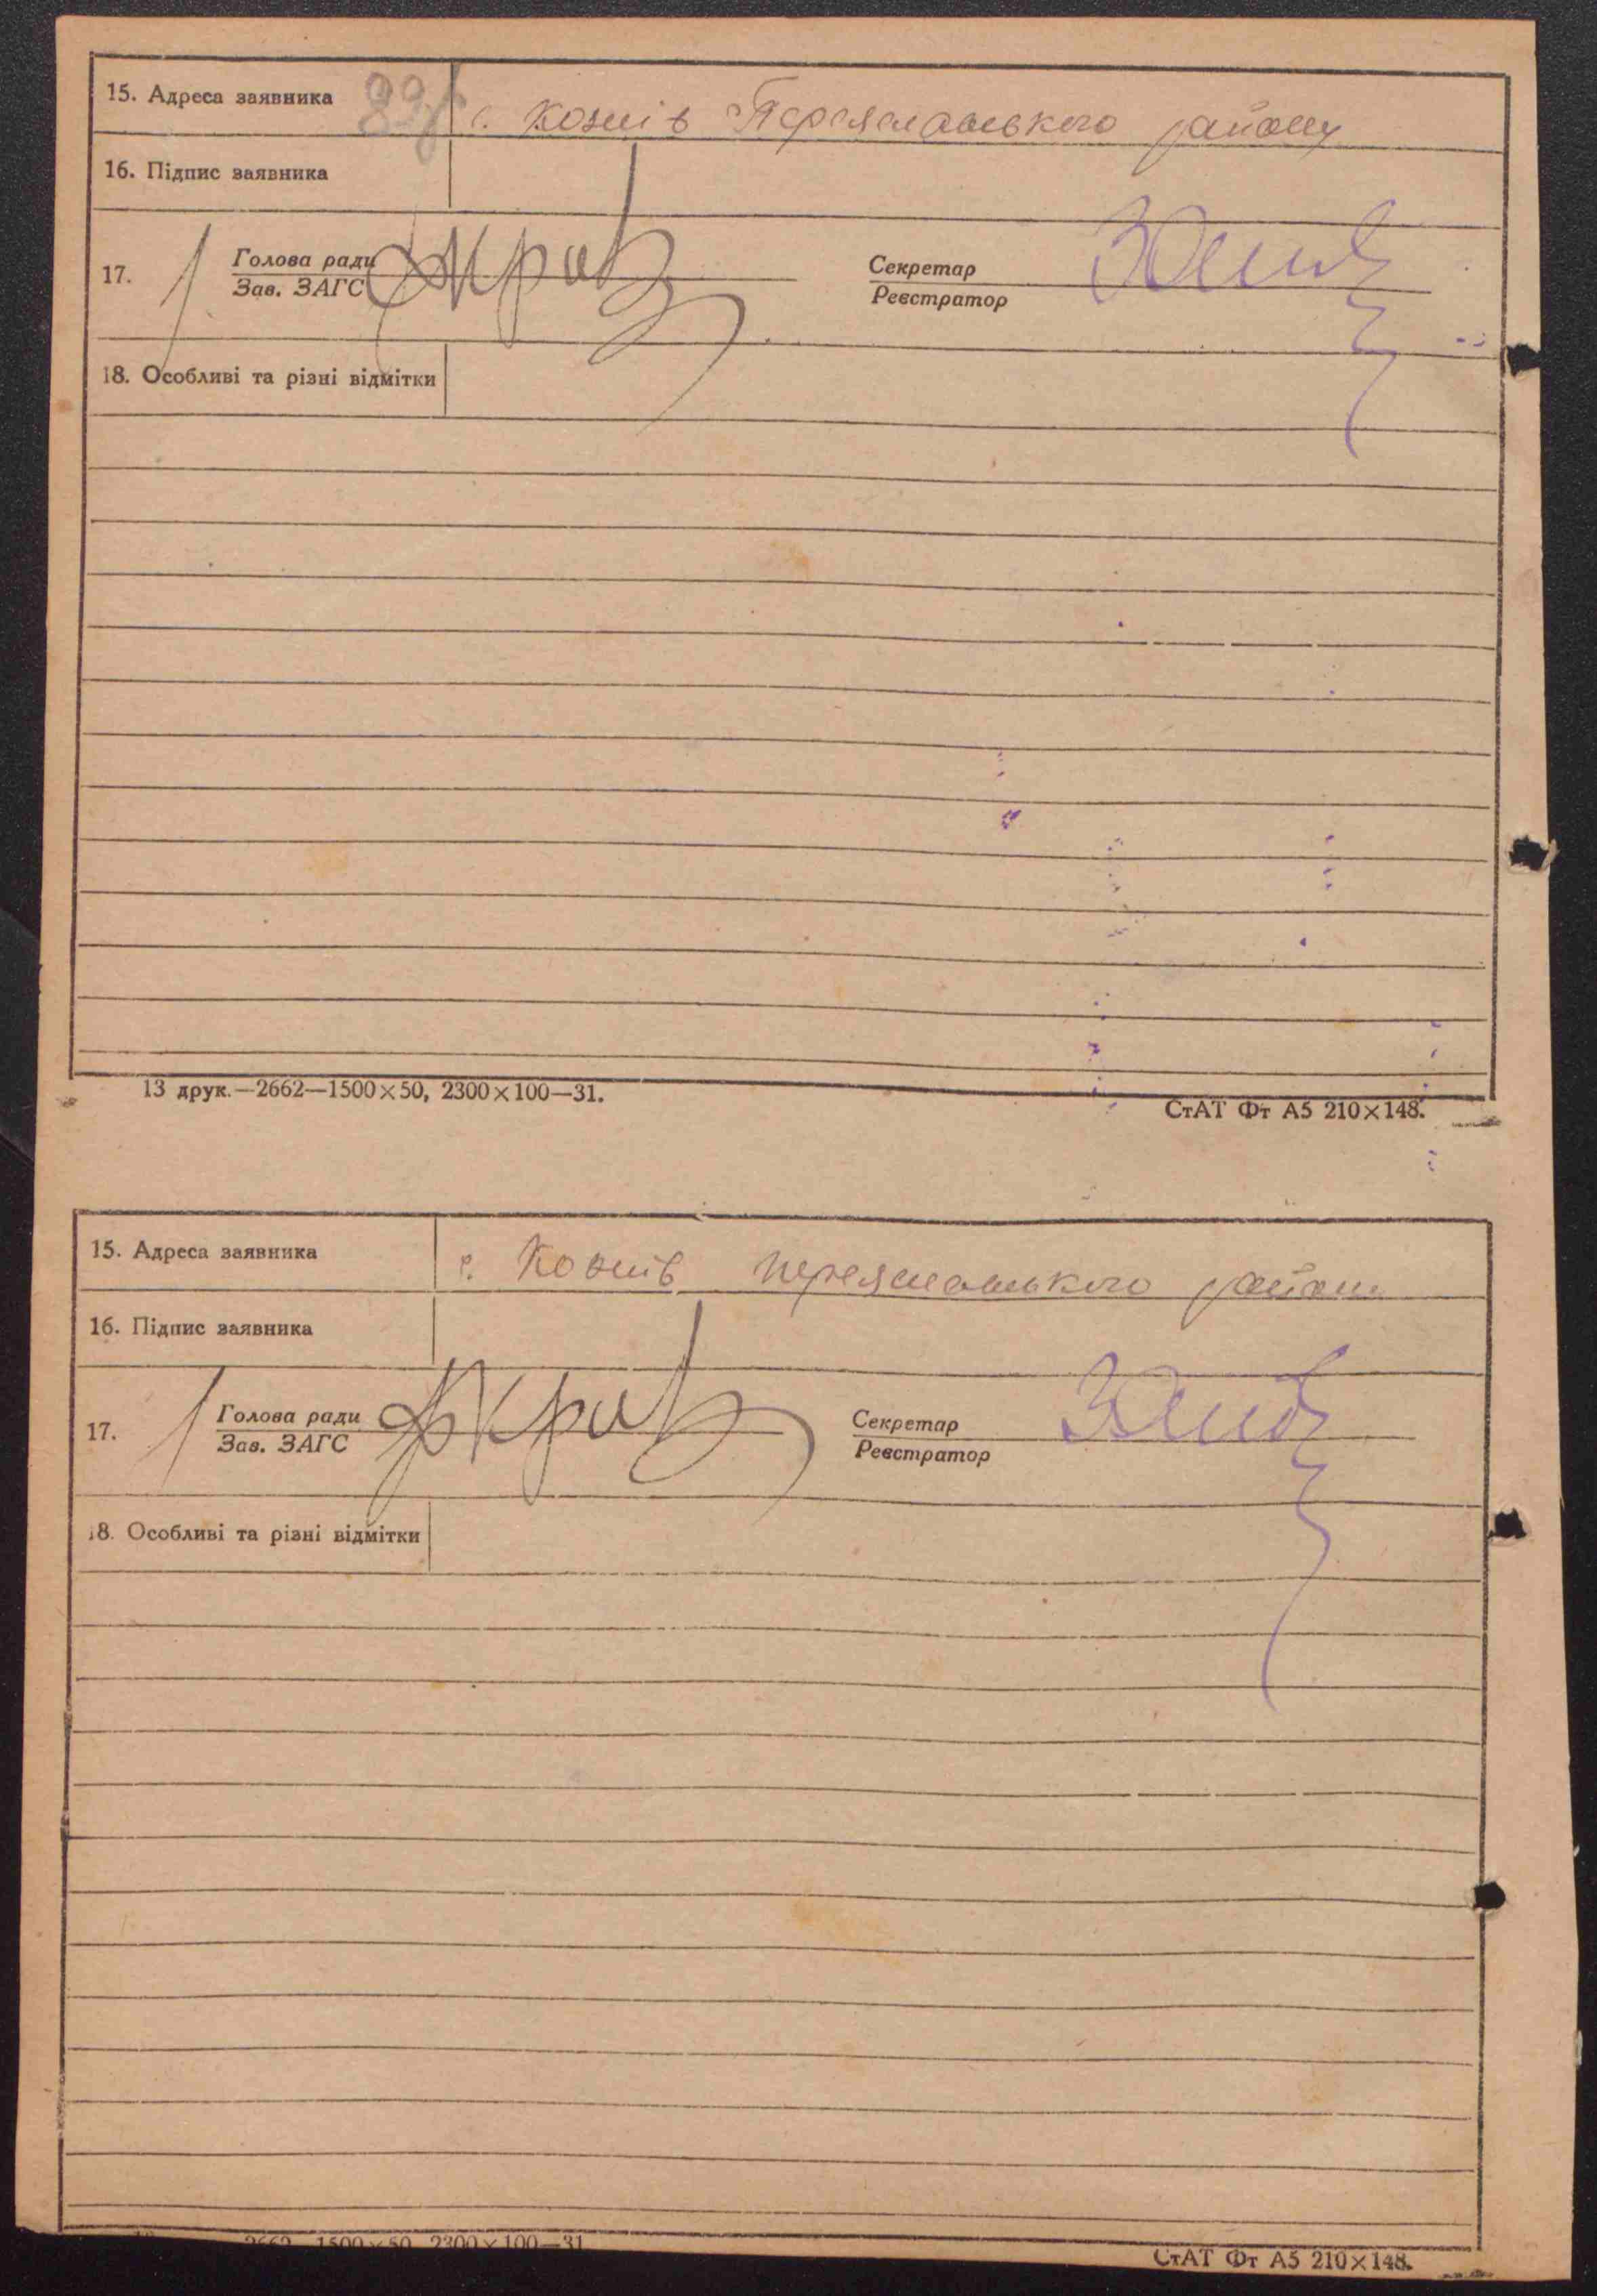 15. Адреса заявника с. Козлів Переяславського району
16. Підпис заявника
17. Голова ради Секретар
Зав. ЗАГС Реєстратор
18. Особливі та різні відмітки
13 друк.—2662—1500×50, 2300×100—31.
СтАТ Фт А5 210×148.
15. Адреса заявника с. Козлів переяславського району
16. Підпис заявника
17. Голова ради Секретар
Зав. ЗАГС Реєстратор
18. Особливі та різні відмітки
2662—1500×50, 2300×100—31
СтАТ Фт А5 210×148.